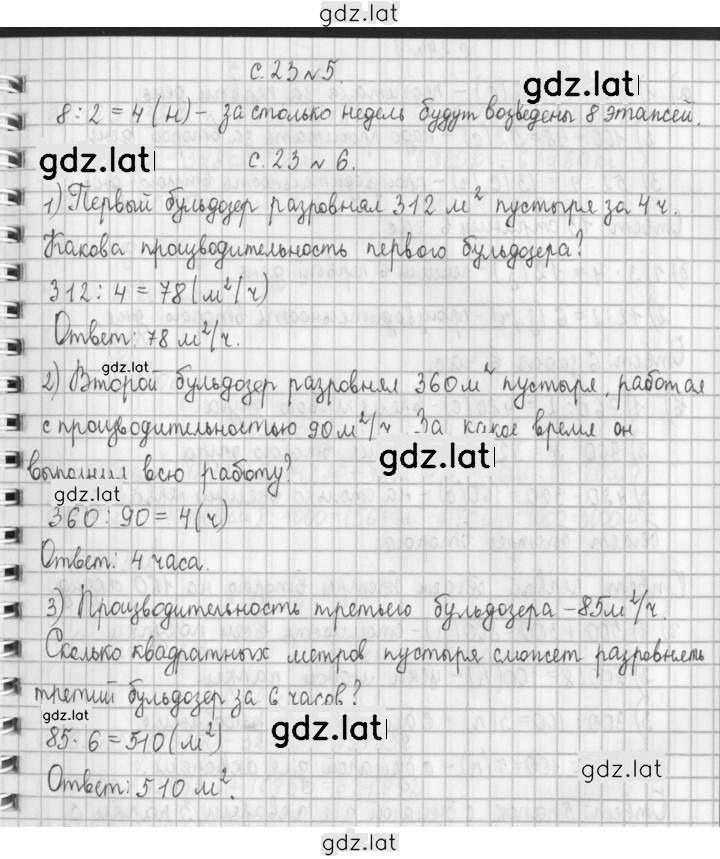 gdz.lat
с.23 №5.
gdz.lat
8:2=4(н)- за столько недель будут возведены 8 этапсей.
gdz.lat
с.23 № 6.
1) Первый бульдозер разровнял 312 м² пустыря за 4 ч.
Какова производительность первого бульдозера?
312:4=78(м²/ч)
Ответ: 78 м²/ч.
gdz.lat
2) Второй бульдозер разровнял 360м² пустыря, работая
с производительностью 90м²/ч. За какое время он
gdz.lat
выполнил всю работу?
gdz.lat
360:90=4(ч)
Ответ: 4 часа.
3) Производительность третьего бульдозера -85м²/ч.
Сколько квадратных метров пустыря сможет разровнять
третий бульдозер за 6 часов?
gdz.lat
gdz.lat
85·6=510(м²)
gdz.lat
Ответ: 510 м².
gdz.lat